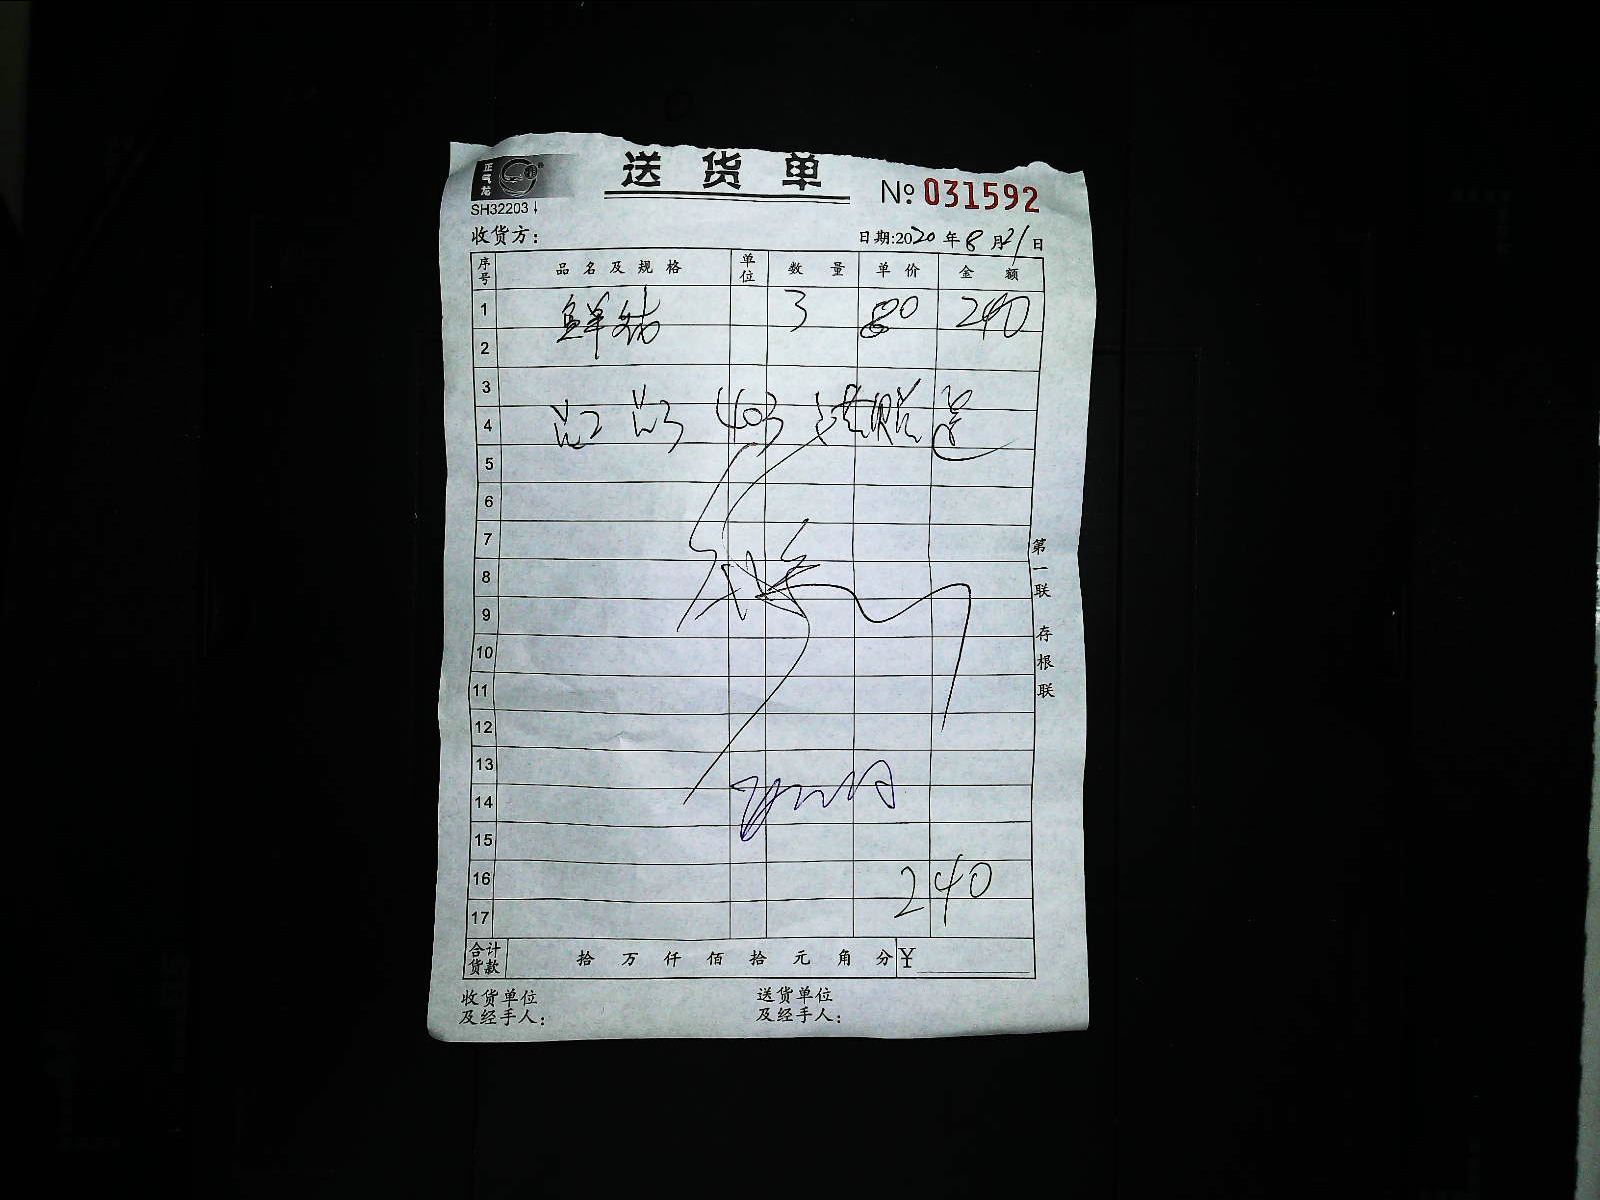 正气龙
送货单
№ 031592
SH32203
收货方:
日期:2020年8月21日
序号 品名及规格 单位 数量 单价 金额
1 鲜 3 80 240
2
3
4 403 送
5
6
7
8
9
10
11
12
13
14
15
16 240
17
合计货款 拾 万 仟 佰 拾 元 角 分 ¥
收货单位及经手人:
送货单位及经手人:
第一联 存根联